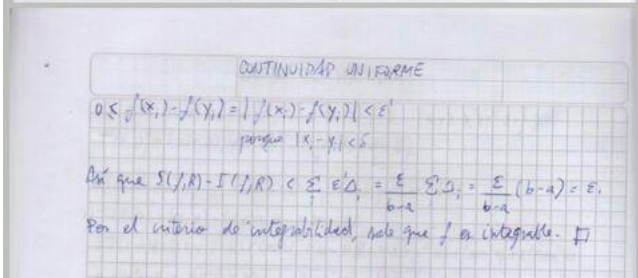 CONTINUIDAD UNIFORME
0 ≤ f(x_i) - f(y_i) = |f(x_i) - f(y_i)| < ε'
porque |x_i - y_i| < δ
Así que S(f,R) - I(f,R) < Σ_i ε'Δ_i = ε/(b-a) Σ Δ_i = ε/(b-a) (b-a) = ε.
Por el criterio de integrabilidad, sale que f es integrable. □